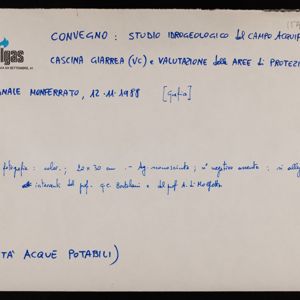 157
lgas
CONVEGNO: STUDIO IDROGEOLOGICO del CAMPO ACQUIF
CASCINA GIARREA (VC) e VALUTAZIONE delle AREE di PROTEZI
NALE MONFERRATO, 12.11.1988 [Grafia]
fotografia: color.; 20x30 cm. - Ag. sconosciuta; n° negativo assente; si alleg
interventi del prof. G.C. Bortolami e del prof. A. Di Molfetta
TÀ ACQUE POTABILI)